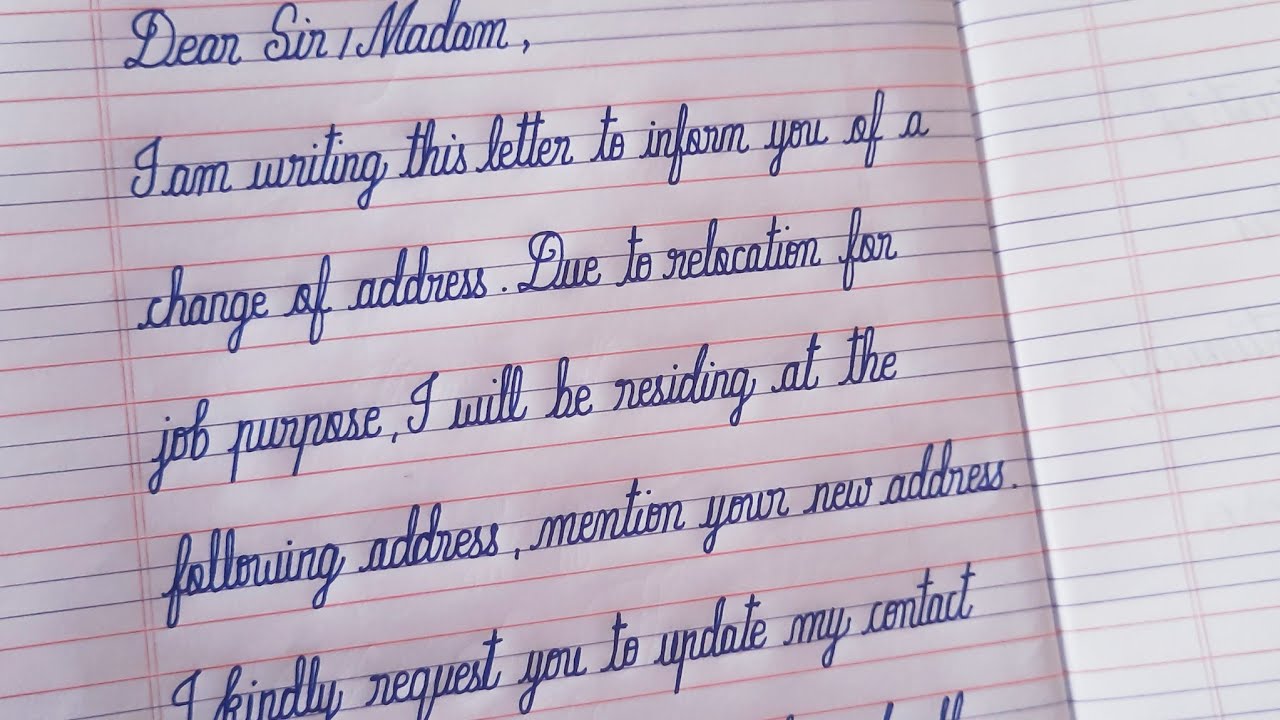 Dear Sir/Madam,
I am writing this letter to inform you of a
change of address. Due to relocation for
job purpose, I will be residing at the
following address, mention your new address.
I kindly request you to update my contact